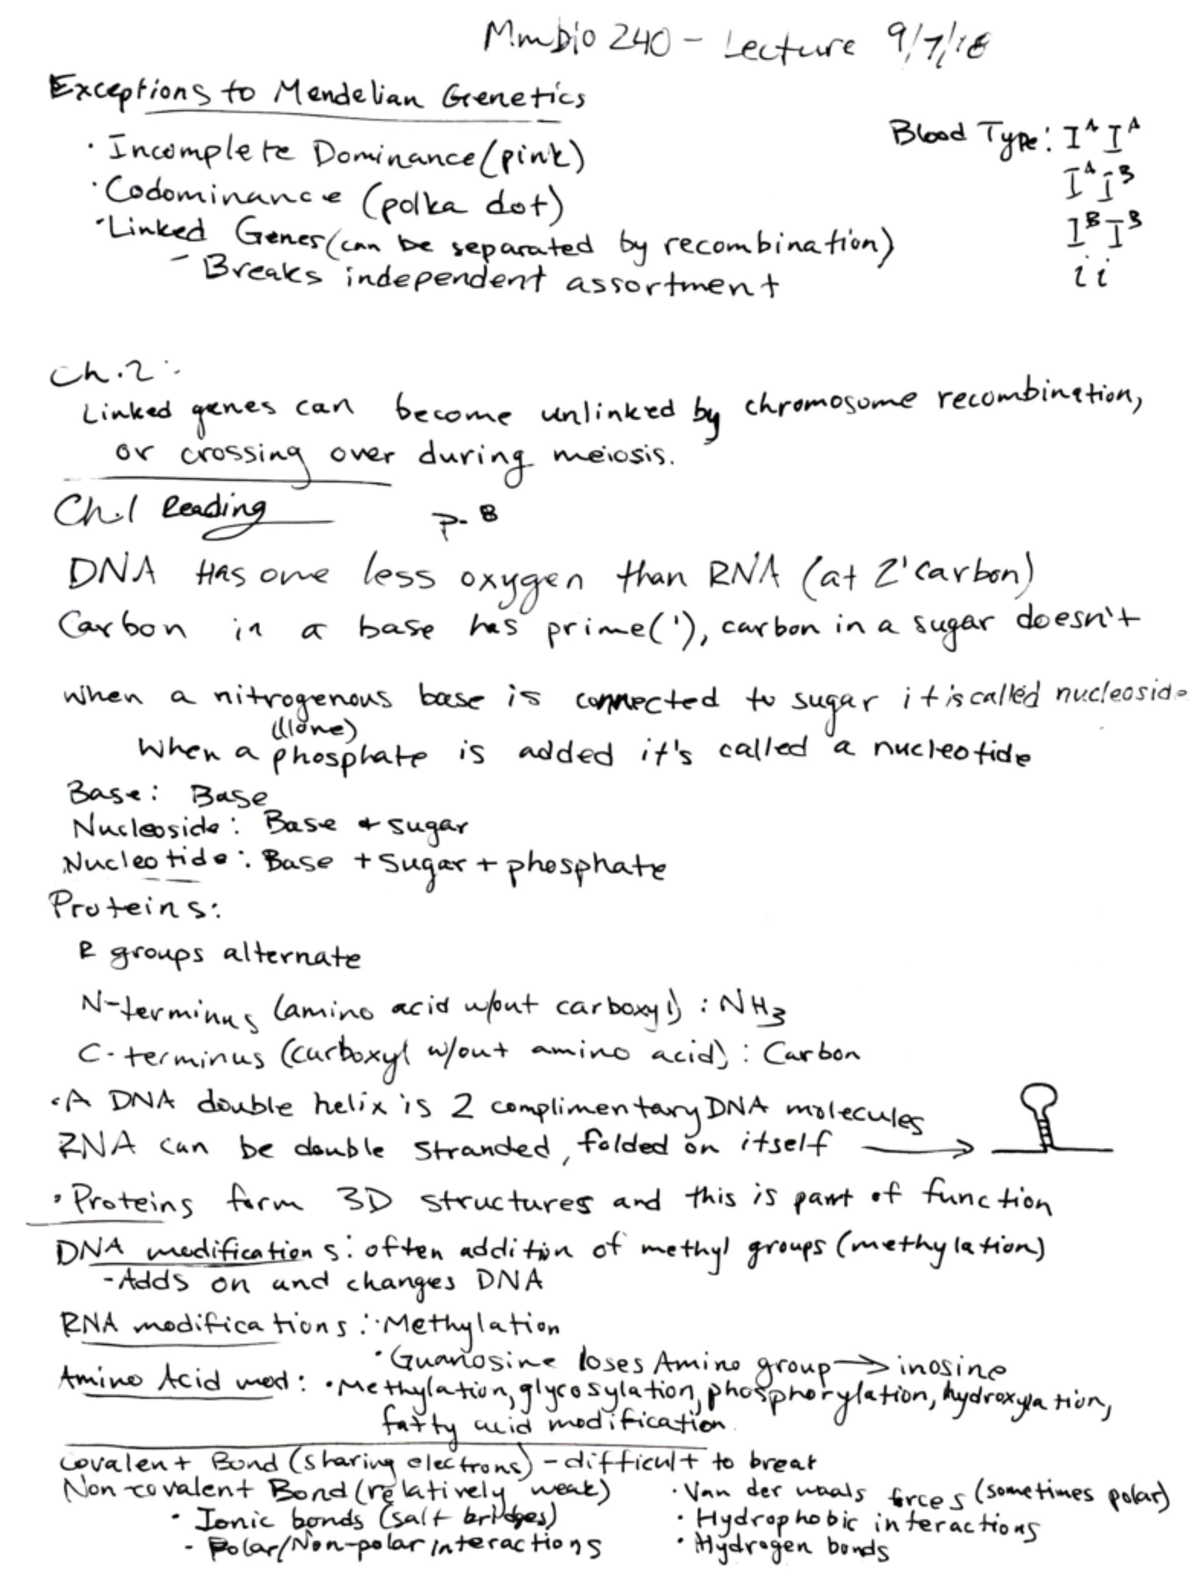 Mmbio 240 - Lecture 9/7/18
Exceptions to Mendelian Genetics
· Incomplete Dominance (pink)
· Codominance (polka dot)
· Linked Genes (can be separated by recombination)
- Breaks independent assortment
Blood Type: I^A I^A
I^A I^B
I^B I^B
i i
Ch.2:
Linked genes can become unlinked by chromosome recombination,
or crossing over during meiosis.
Ch.1 Reading
P- B
DNA Has one less oxygen than RNA (at 2' carbon)
Carbon in a base has prime('), carbon in a sugar doesn't
when a nitrogenous base is connected to sugar it is called nucleoside
When a phosphate is added it's called a nucleotide
Base: Base
Nucleoside: Base + sugar
Nucleotide: Base + Sugar + phosphate
Proteins:
R groups alternate
N-terminus (amino acid w/out carboxyl) : NH3
C-terminus (carboxyl w/out amino acid) : Carbon
· A DNA double helix is 2 complimentary DNA molecules
RNA can be double stranded, folded on itself →
· Proteins form 3D structures and this is part of function
DNA modifications: often addition of methyl groups (methylation)
- Adds on and changes DNA
RNA modifications: · Methylation
· Guanosine loses Amino group → inosine
Amino Acid mod: · Methylation, glycosylation, phosphorylation, hydroxylation,
fatty acid modification
Covalent Bond (sharing electrons) - difficult to break
Non-covalent Bond (relatively weak)
· Ionic bonds (salt bridges)
- Polar/Non-polar interactions
· Van der waals forces (sometimes polar)
· Hydrophobic interactions
· Hydrogen bonds